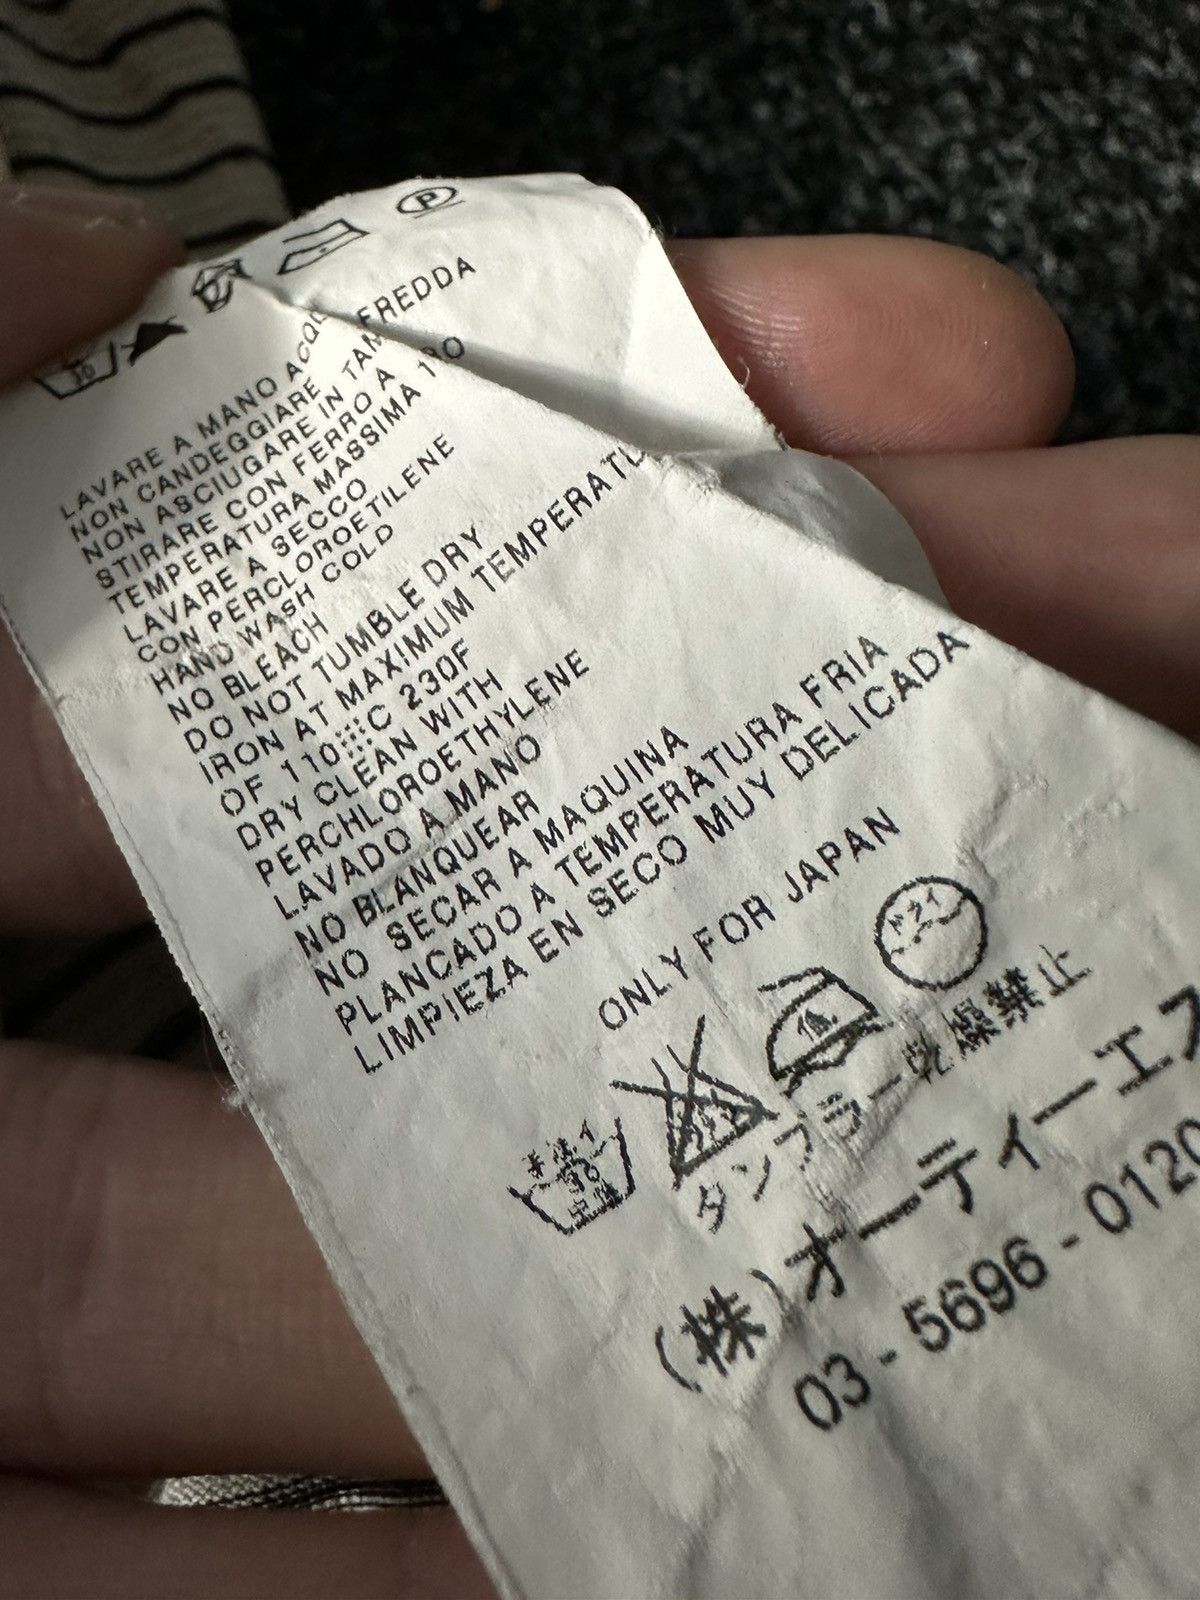 P
30
LAVARE A MANO FREDDA
NON CANDEGGIARE
NON ASCIUGARE IN
STIRARE CON FERRO A
TEMPERATURA MASSIMA
LAVARE A SECCO
CON PERCLOROETILENE
HAND WASH COLD
NO BLEACH
DO NOT TUMBLE DRY
IRON AT MAXIMUM
OF 110 C 230F
DRY CLEAN WITH
PERCHLOROETHYLENE
LAVADO A MANO
NO BLANQUEAR
NO SECAR A MAQUINA
PLANCADO A TEMPERATURA FRIA
LIMPIEZA EN SECO MUY DELICADA
ONLY FOR JAPAN
ドライ
タンブラー乾燥禁止
(株)オーティーエス
03-5696-0120